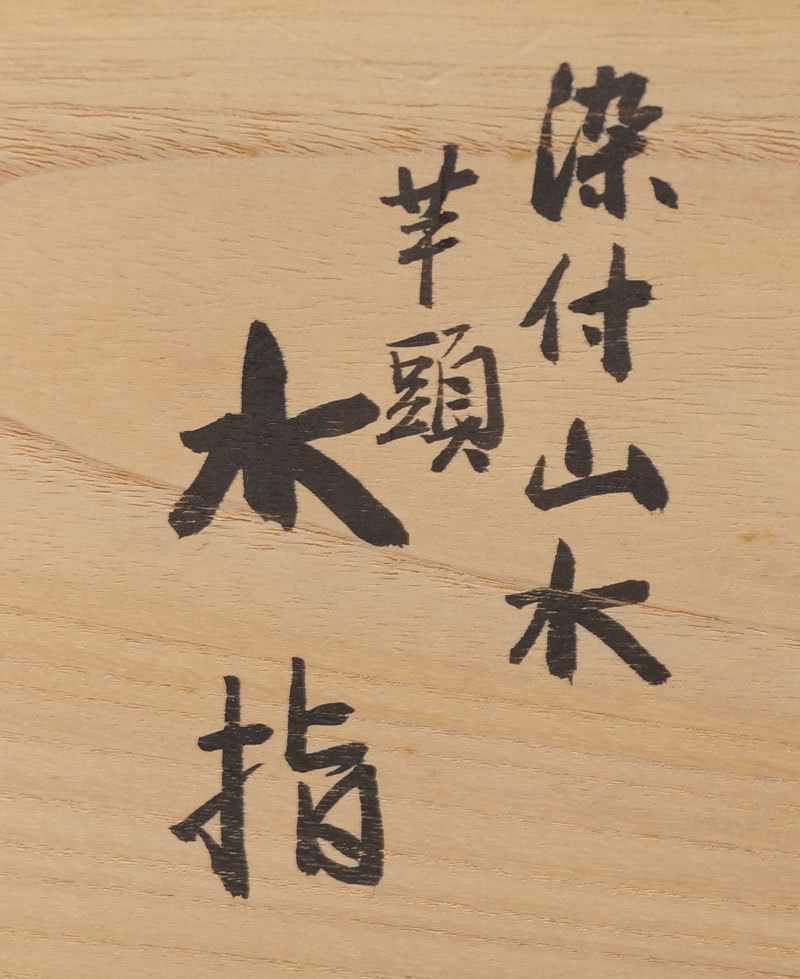 染付山水
芋頭
水指